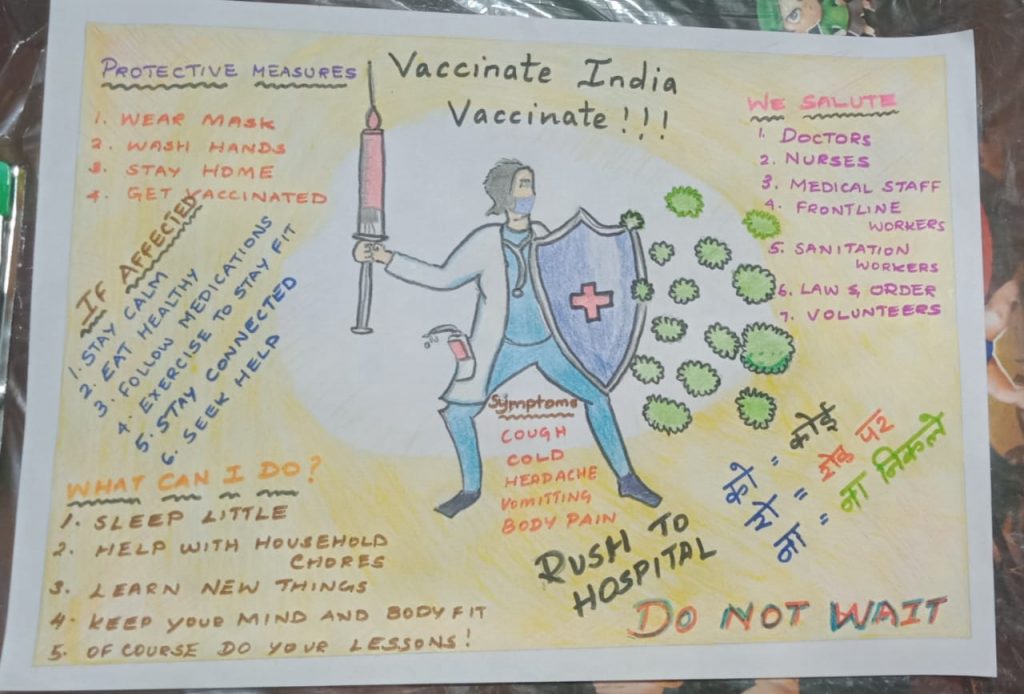 Vaccinate India
Vaccinate!!!
PROTECTIVE MEASURES
1. WEAR MASK
2. WASH HANDS
3. STAY HOME
4. GET VACCINATED
IF AFFECTED
1. STAY CALM
2. EAT HEALTHY
3. FOLLOW MEDICATIONS
4. EXERCISE TO STAY FIT
5. STAY CONNECTED
6. SEEK HELP
WHAT CAN I DO?
1. SLEEP LITTLE
2. HELP WITH HOUSEHOLD
CHORES
3. LEARN NEW THINGS
4. KEEP YOUR MIND AND BODY FIT
5. OF COURSE DO YOUR LESSONS!
Symptoms
COUGH
COLD
HEADACHE
VOMITTING
BODY PAIN
RUSH TO
HOSPITAL
DO NOT WAIT
WE SALUTE
1. DOCTORS
2. NURSES
3. MEDICAL STAFF
4. FRONTLINE
WORKERS
5. SANITATION
WORKERS
6. LAW & ORDER
7. VOLUNTEERS
को = कोई
रो = रोड पर
ना = ना निकले